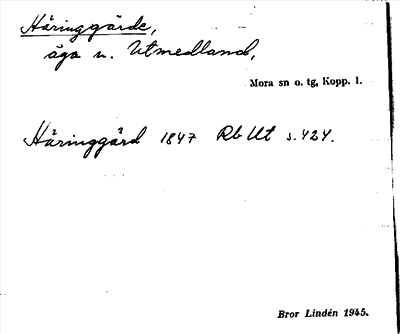 Häringgärde,
äga n. Utmedland,
Mora sn o. tg, Kopp. l.
Häringgärd 1847 Rb Ut s. 424.
Bror Lindén 1945.